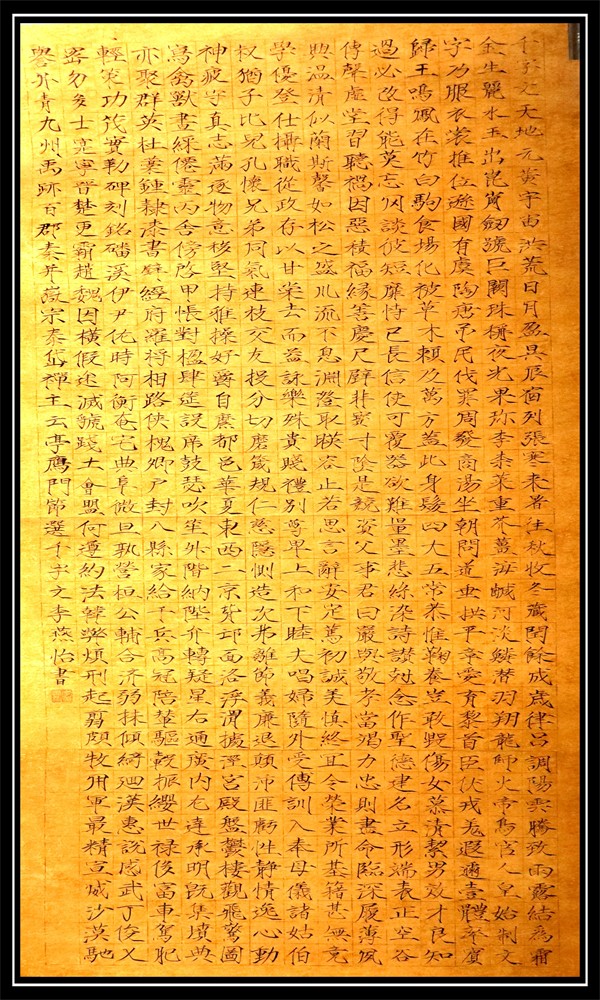 千字文天地元黃宇宙洪荒日月盈昃辰宿列張寒來暑往秋收冬藏閏餘成歲律呂調陽雲騰致雨露結為霜
金生麗水玉出崑岡劍號巨闕珠稱夜光果珍李柰菜重芥薑海鹹河淡鱗潛羽翔龍師火帝鳥官人皇始制文
字乃服衣裳推位遜國有虞陶唐弔民伐罪周發商湯坐朝問道垂拱平章愛育黎首臣伏戎羌遐邇壹體率賓
歸王鳴鳳在竹白駒食場化被草木賴及萬方蓋此身髮四大五常恭惟鞠養豈敢毀傷女慕清潔男效才良知
過必改得能莫忘罔談彼短靡恃己長信使可覆器欲難量墨悲絲染詩讚尅念作聖德建名立形端表正空谷
傳聲虛堂習聽禍因惡積福緣善慶尺璧非寶寸陰是競資父事君曰嚴與敬孝當竭力忠則盡命臨深履薄夙
興溫清似蘭斯馨如松之盛川流不息淵澄取映容止若思言辭安定篤初誠美慎終宜令榮業所基籍甚無竟
學優登仕攝職從政存以甘棠去而益詠樂殊貴賤禮別尊卑上和下睦夫唱婦隨外受傅訓入奉母儀諸姑伯
叔猶子比兒孔懷兄弟同氣連枝交友投分切磨箴規仁慈隱惻造次弗離節義廉退顛沛匪虧性靜情逸心動
神疲守真志滿逐物意移堅持雅操好爵自縻都邑華夏東西二京背邙面洛浮渭據涇宮殿盤鬱樓觀飛驚圖
寫禽獸畫綵僊靈丙舍傍啓甲帳對楹肆筵設席鼓瑟吹笙升階納陛弁轉疑星右通廣內左達承明既集墳典
亦聚群英杜稾鍾隸漆書壁經府羅將相路俠槐卿戶封八縣家給千兵高冠陪輦驅轂振纓世祿侈富車駕肥
輕策功茂實勒碑刻銘磻溪伊尹佐時阿衡奄宅曲阜微旦孰營桓公輔合濟弱扶傾綺迴漢惠說感武丁俊乂
密勿多士寔寧晉楚更霸趙魏困橫假途滅虢踐土會盟何遵約法韓弊煩刑起翦頗牧用軍最精宣威沙漠馳
譽丹青九州禹跡百郡秦并嶽宗泰岱禪主云亭鴈門節選千字文李燕怡書